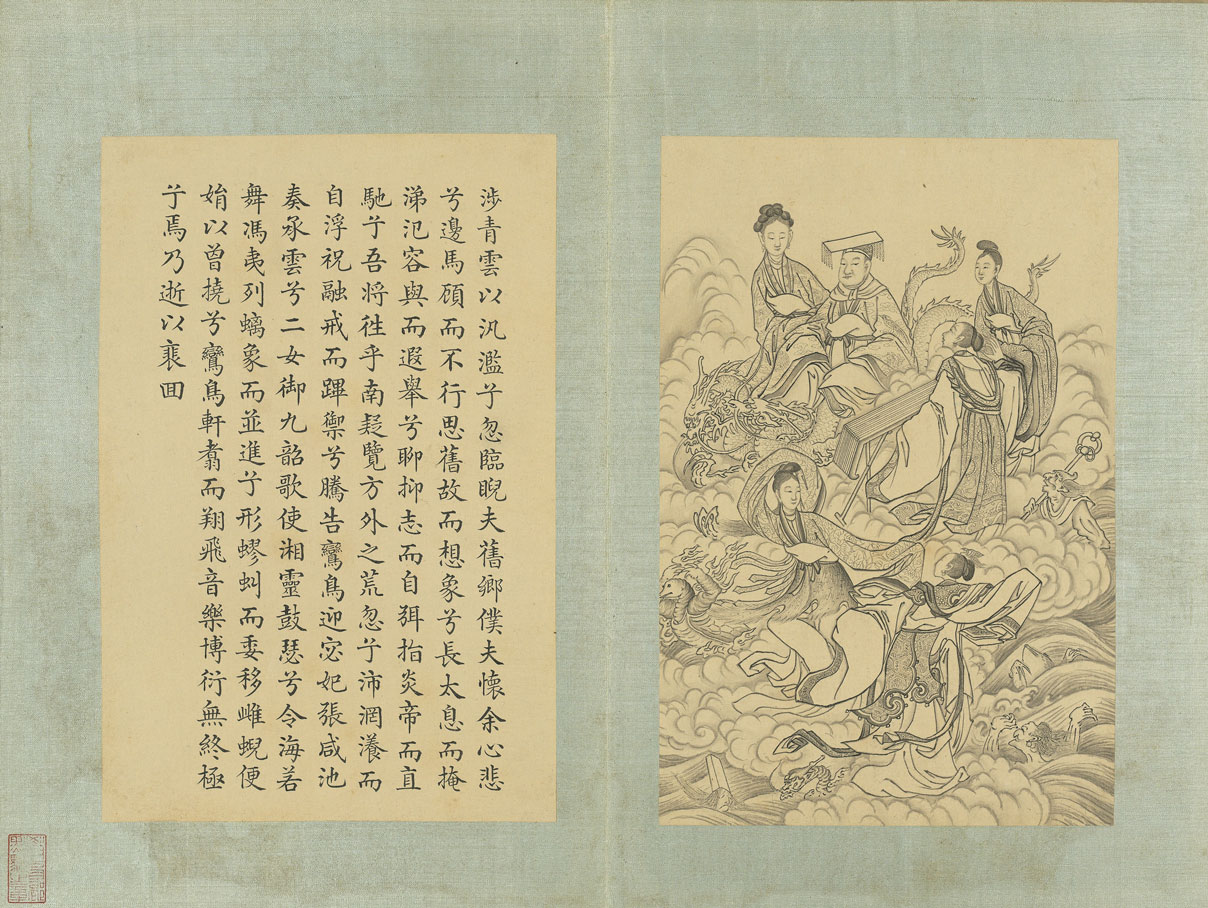 涉青雲以汎濫兮忽臨睨夫舊鄉僕夫懷余心悲
兮邊馬顧而不行思舊故而想象兮長太息而掩
涕氾容與而遐舉兮聊抑志而自弭指炎帝而直
馳兮吾將往乎南疑覽方外之荒忽兮沛瀁而
自浮祝融戒而蹕禦兮騰告鸞鳥迎宓妃張咸池
奏承雲兮二女御九韶歌使湘靈鼓瑟兮令海若
舞馮夷列螭象而並進兮形蟉虯而委移雌蜺便
娟以曾撓兮鸞鳥軒翥而翔飛音樂博衍無終極
兮焉乃逝以裵回